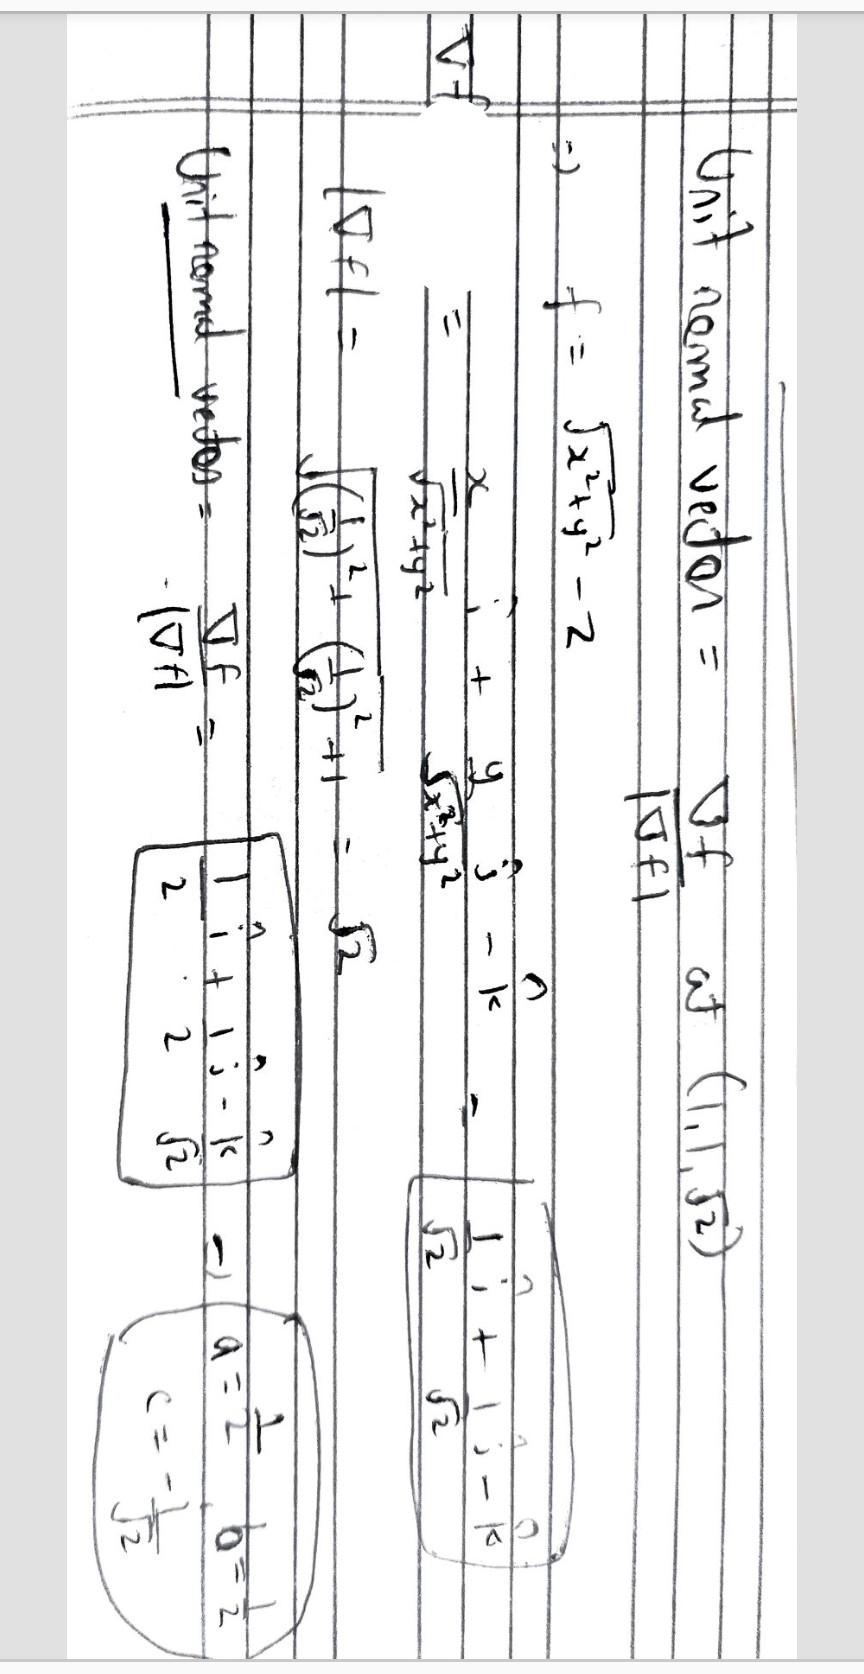 Unit normal vector = ∇f / |∇f| at (1,1,√2)
=) f = √(x²+y²) - z
∇f = x/√(x²+y²) i + y/√(x²+y²) ĵ - k̂ = 1/√2 î + 1/√2 ĵ - k̂
|∇f| = √((1/√2)² + (1/√2)² + 1) = √2
Unit normal vector = ∇f / |∇f| = 1/2 î + 1/2 ĵ - k̂/√2 → a = 1/2 b = 1/2
c = -1/√2